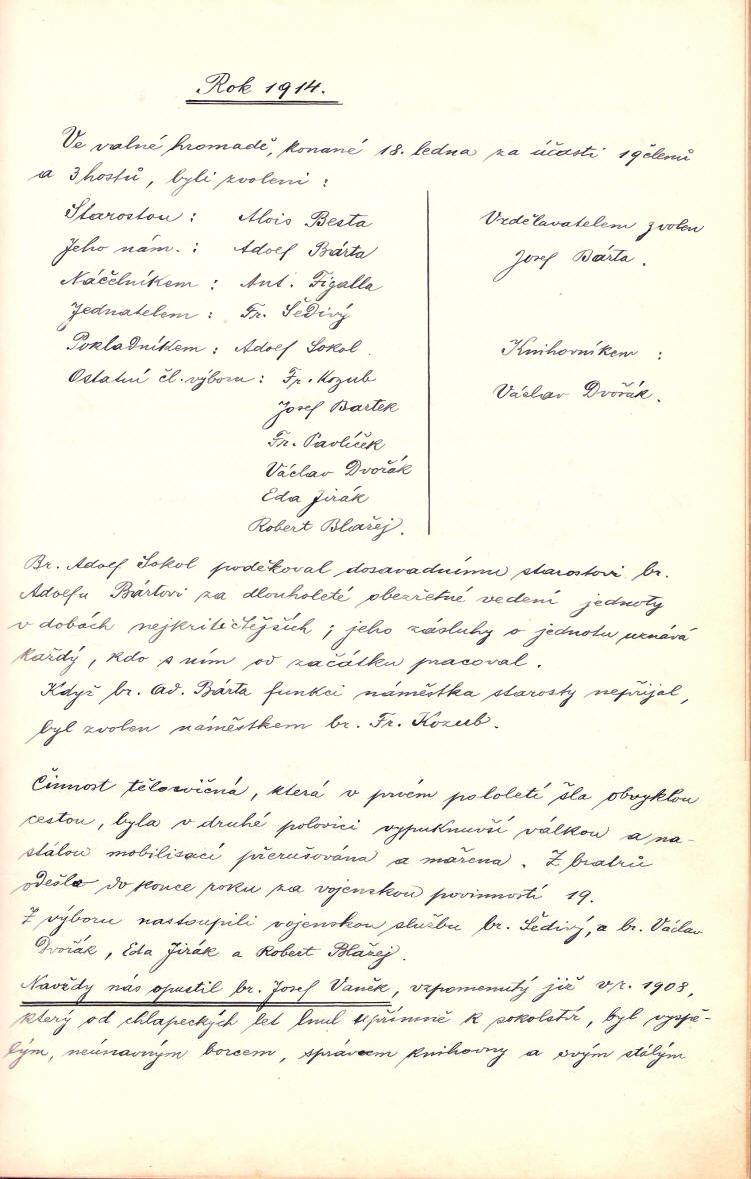 Rok 1914.
Ve valné hromadě, konané 18. ledna za účasti 19 členů
a 3 hostů, byli zvoleni :
Starostou : Alois Besta
Jeho nám. : Adolf Bárta
Náčelníkem : Ant. Figalla
Jednatelem : Fr. Šedivý
Pokladníkem : Adolf Sokol.
Ostatní čl. výboru : Fr. Kozub
Josef Bartek
Fr. Pavlíček
Václav Dvořák
Eda Jirák
Robert Blažej.
Vzdělavatelem zvolen
Josef Bárta.
Knihovníkem :
Václav Dvořák.
Br. Adolf Sokol poděkoval dosavadnímu starostovi br.
Adolfu Bártovi za dlouholeté obezřetné vedení jednoty
v dobách nejkritičtějších ; jeho zásluhy o jednotu uznává
každý, kdo s ním od začátku pracoval.
Když br. Ad. Bárta funkci náměstka starosty nepřijal,
byl zvolen náměstkem br. Fr. Kozub.
Činnost tělocvičná, která v prvém pololetí šla obvyklou
cestou, byla v druhé polovici vypuknuvší válkou a na-
stálou mobilisací přerušována a mařena. Z bratrů
odešlo do konce roku za vojenskou povinností 19.
Z výboru nastoupili vojenskou službu br. Šedivý, a br. Václav
Dvořák, Eda Jirák a Robert Blažej.
Navždy nás opustil br. Josef Vaněk, vzpomenutý již v r. 1908,
který od chlapeckých let lnul upřímně k sokolství, byl vyspě-
lým, neúnavným borcem, správcem knihovny a svým stálým